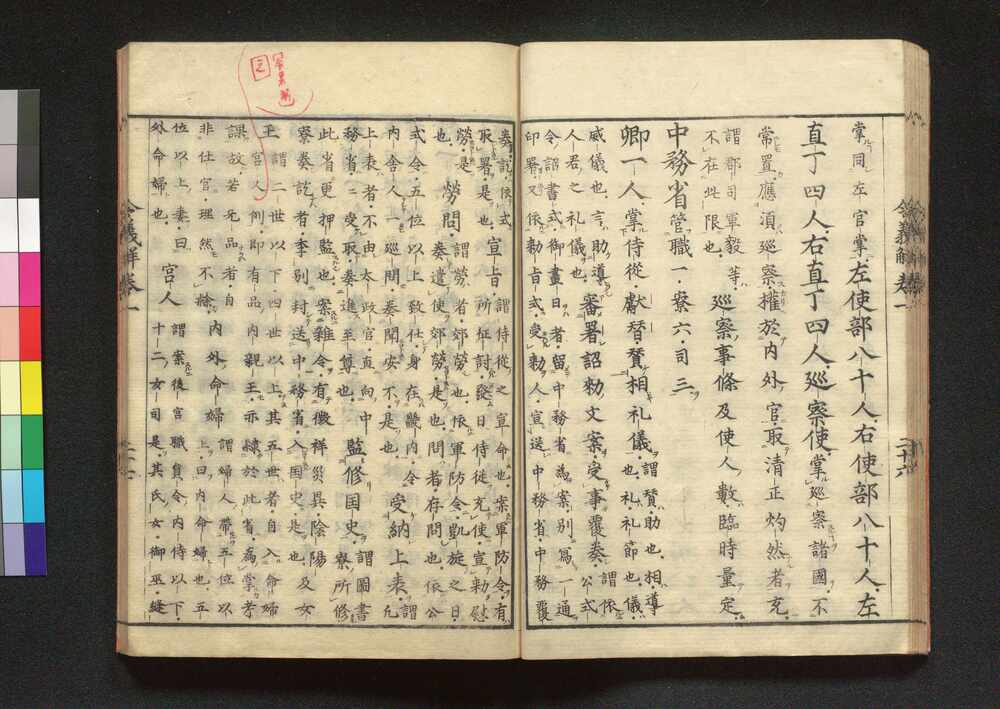 掌同左官掌左使部八十人右使部八十人左
直丁四人右直丁四人巡察使掌巡察諸國不
常置應須巡察權於内外官取清正灼然者充
謂郡司軍毅等
不在此限也
巡察事條及使人數臨時量定
中務省管職一寮六司三
卿一人掌侍從獻替賛相礼儀
謂賛助也相導
也礼礼節也儀
威儀也言助導
人君之礼儀也
審署詔勅文案受事覆奏
謂依
公式
令詔書式御畫日者留中務省爲案別爲一通
印署又依勅旨式受勅人宣送中務省中務覆
令義解卷一
二十六
奏訖依式
取署是也
宣旨
謂侍從之宣命也案軍防令有
所征討發日侍從充使宣勅慰
勞是
也
勞問
謂勞者郊勞也依軍防令凱旋之日
奏遣使郊勞是也問者存問也依公
式令五位以上致仕身在畿内令
内舎人一巡問奏聞安不是也
受納上表
謂
凡
上表者不由太政官直向中
務省受取奏進至尊也
監修国史
謂圖書
寮所修
此省更押監也案雜令有徴祥災異陰陽
寮奏訖者季別封送中務省入国史是也
及女
王
謂二世以下四世以上其五世者自入命婦
宮人例即有品内親王亦隸於此省爲掌考
課故若无品者自
非仕官理然不除
内外命婦
謂婦人帶五位以
上曰内命婦也五
位以上妻曰
外命婦也
宮人
謂案後宮職員令内侍以下
十二女司是其氏女御巫縫
令義解卷一